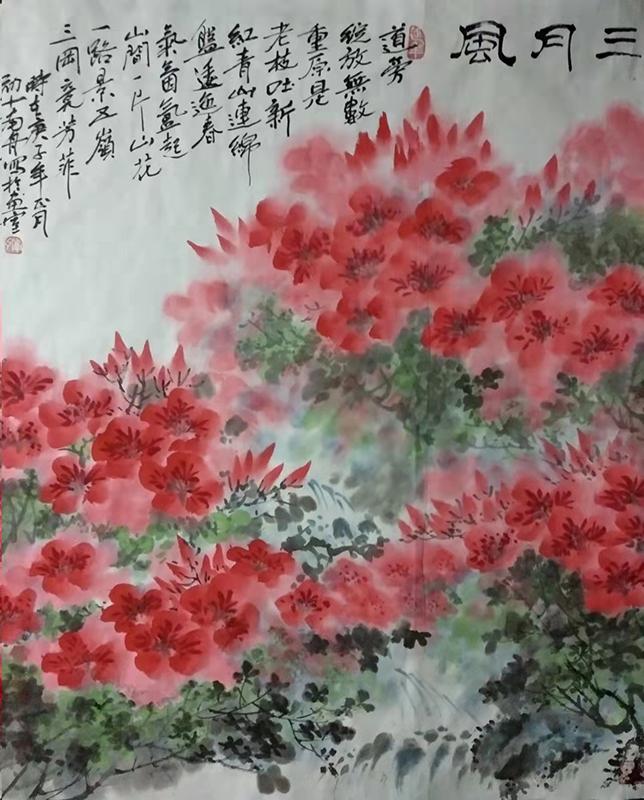 三月風
道旁
綻放無數
重原是
老枝吐新
紅青山連綿
盤逶迤春
氣茵氳起
山間一片山花
一路景五嶺
三岡竟芳菲
時在庚子年正月
初十南丹寫於畫室